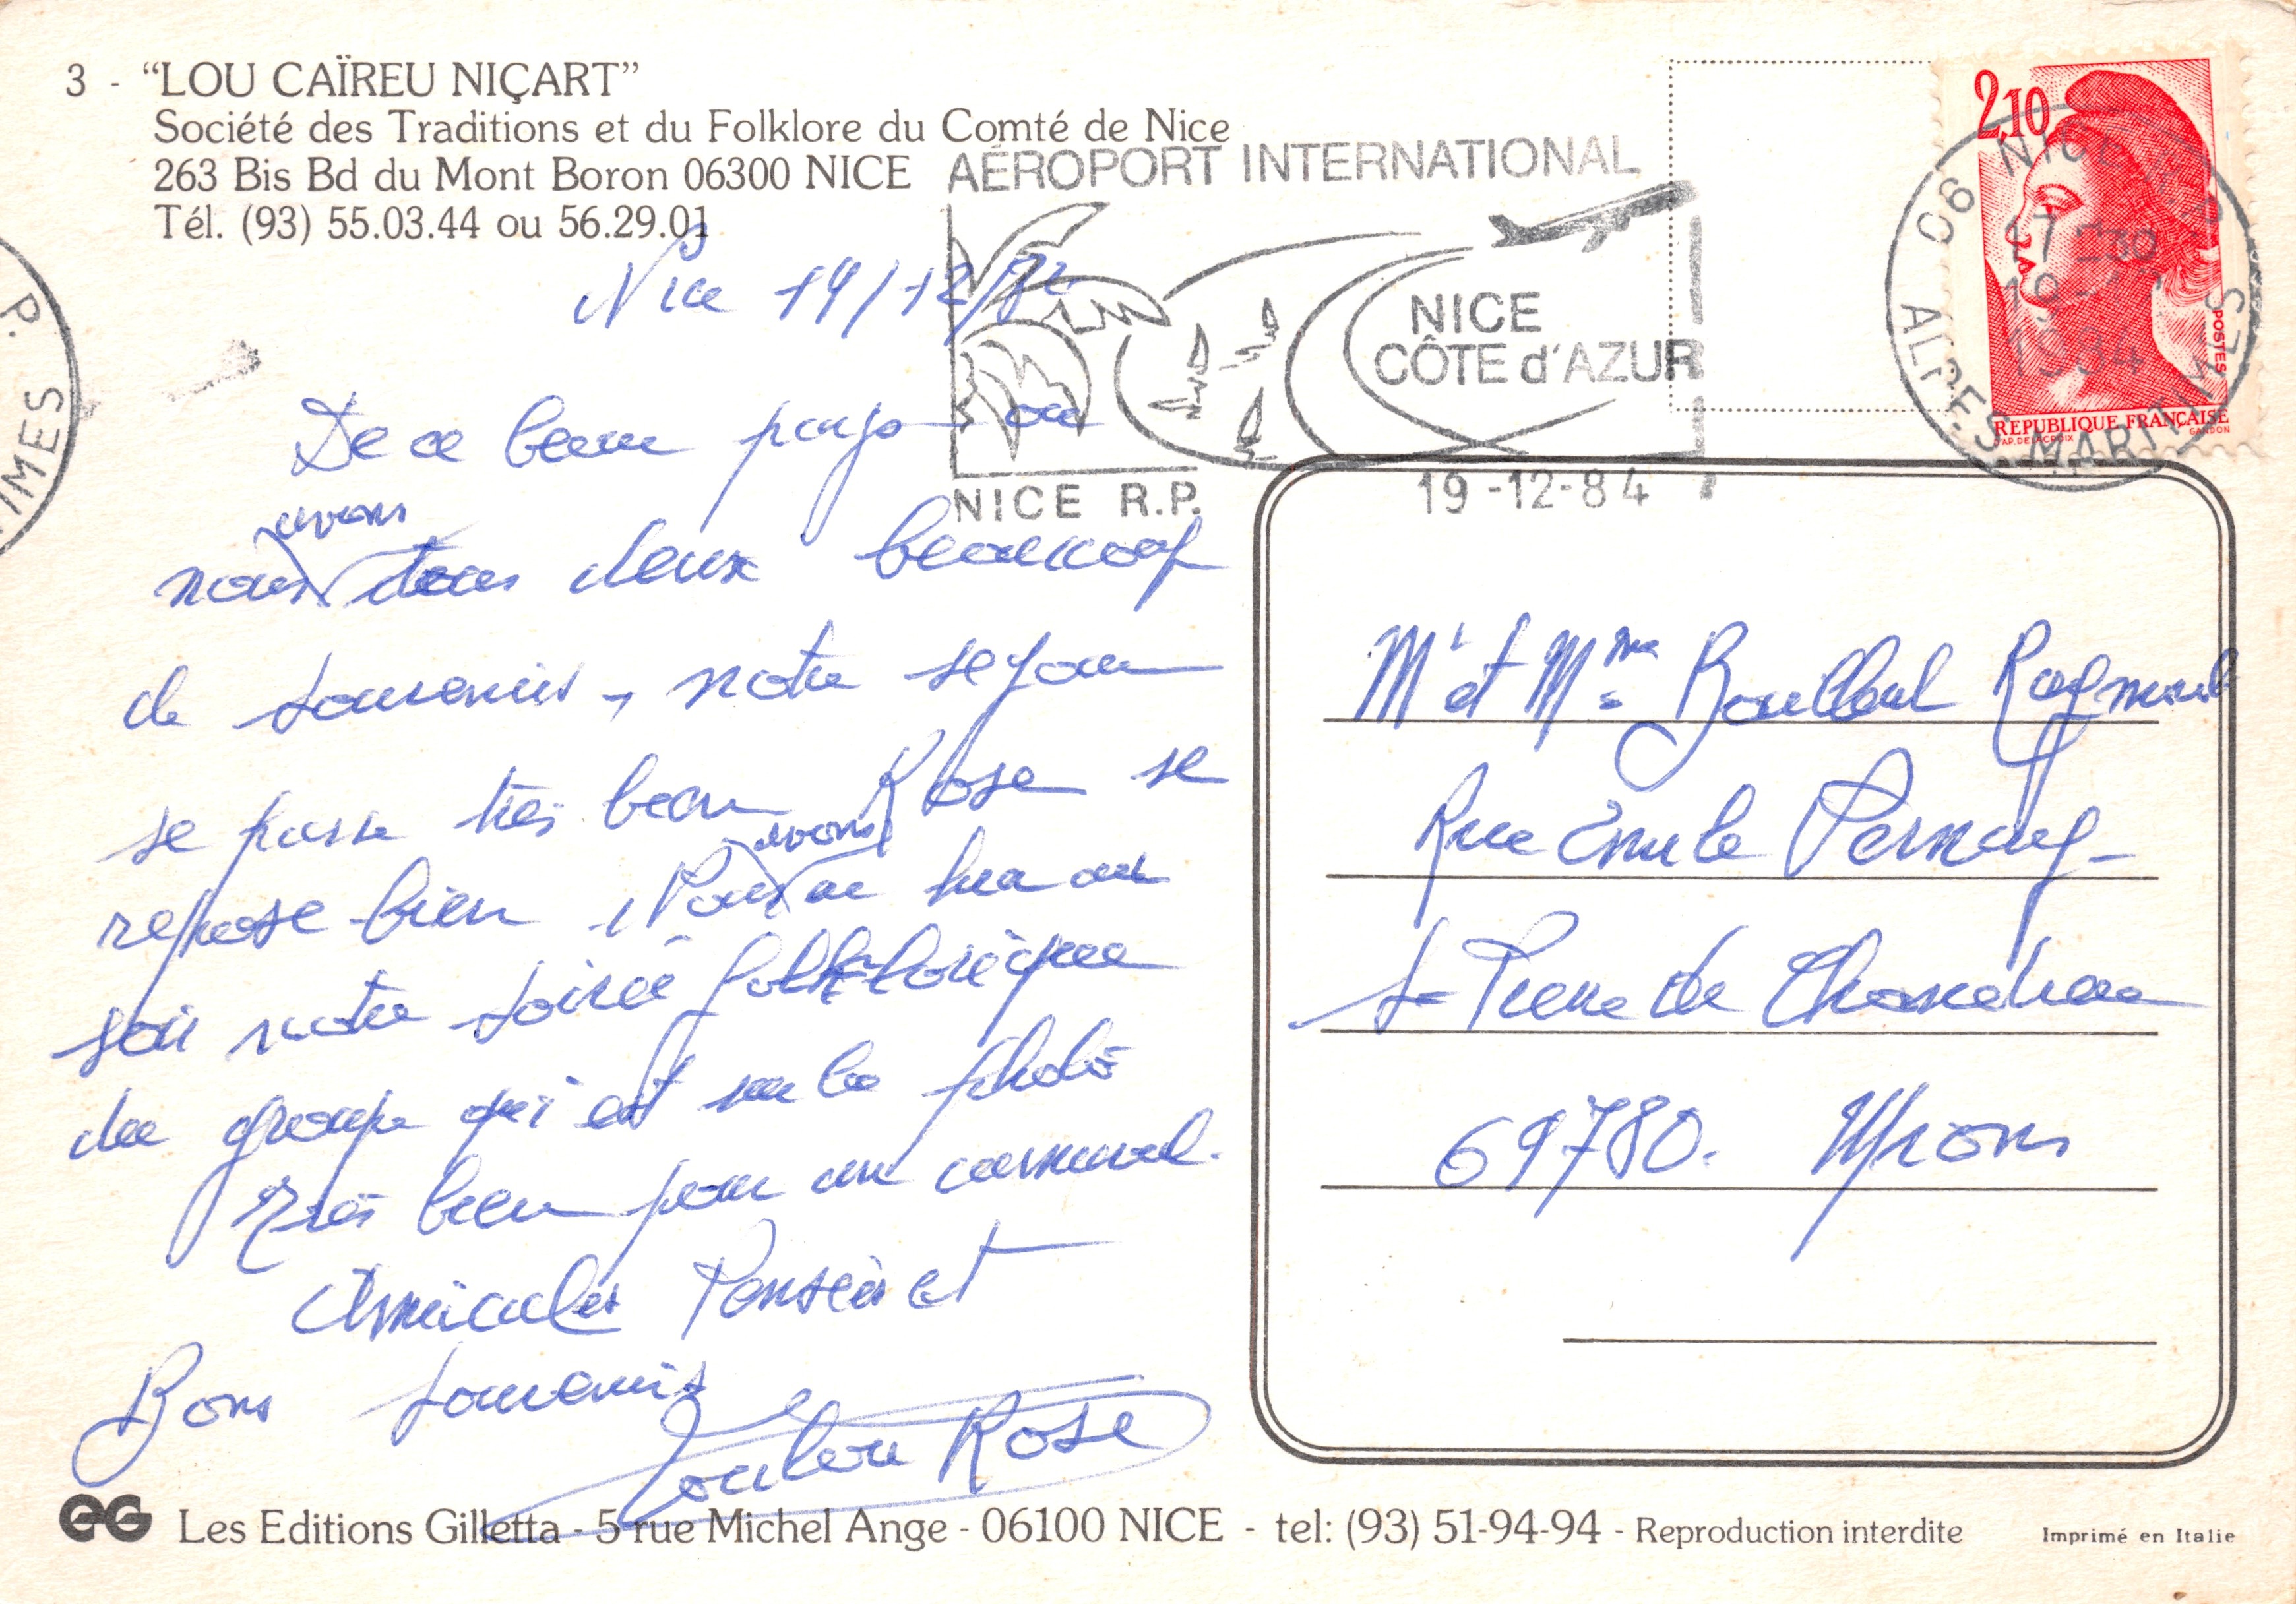 3 - “LOU CAÏREU NIÇART”
Société des Traditions et du Folklore du Comté de Nice
263 Bis Bd du Mont Boron 06300 NICE
Tél. (93) 55.03.44 ou 56.29.01
AÉROPORT INTERNATIONAL
NICE
CÔTE d'AZUR
NICE R.P.
19-12-84
2,10
POSTES
REPUBLIQUE FRANÇAISE
AP. DELACROIX
GANDON
06 NICE R.P.
ALPES MARITIMES
P.
IMES
Nice 19/12/
De ce beau pays ou
avons
nous tous deux beaucoup
de souvenirs, notre sejour
se passe très bien Rose se
avons
repose bien, Nous eu hier au
soir notre soireé folklorique
du groupe qui est sur la photo
Très bien pour un carnaval.
Amicales Penseés et
Bons souvenirs
Rose
Mr et Mme Raymond
Rue Emile Pernay
St Pierre de Chandieu
69780. Mions
Les Editions Gilletta - 5 rue Michel Ange - 06100 NICE - tel: (93) 51-94-94 - Reproduction interdite
Imprimé en Italie